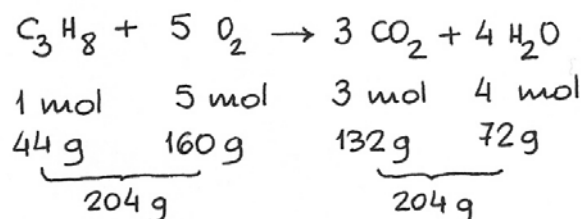 C₃H₈ + 5 O₂ → 3 CO₂ + 4 H₂O
1 mol 5 mol 3 mol 4 mol
44 g 160 g 132 g 72 g
204 g 204 g